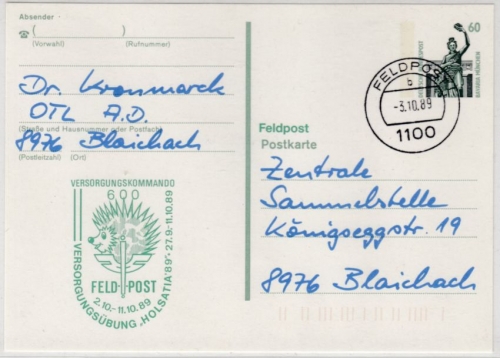 Absender
☎ ( )
(Vorwahl) (Rufnummer)
Dr. Kronmarck
OTL A.D.
(Straße und Hausnummer oder Postfach)
8976 Blaichach
(Postleitzahl) (Ort)
VERSORGUNGSKOMMANDO
600
FELD-POST
2.10.-11.10.89
VERSORGUNGSÜBUNG „HOLSATIA '89"-27.9.-11.10.89
60
DEUTSCHE BUNDESPOST
BAVARIA MÜNCHEN
FELDPOST
b
-3.10.89
1100
Feldpost
Postkarte
Zentrale
Sammelstelle
Königseggstr. 19
8976 Blaichach